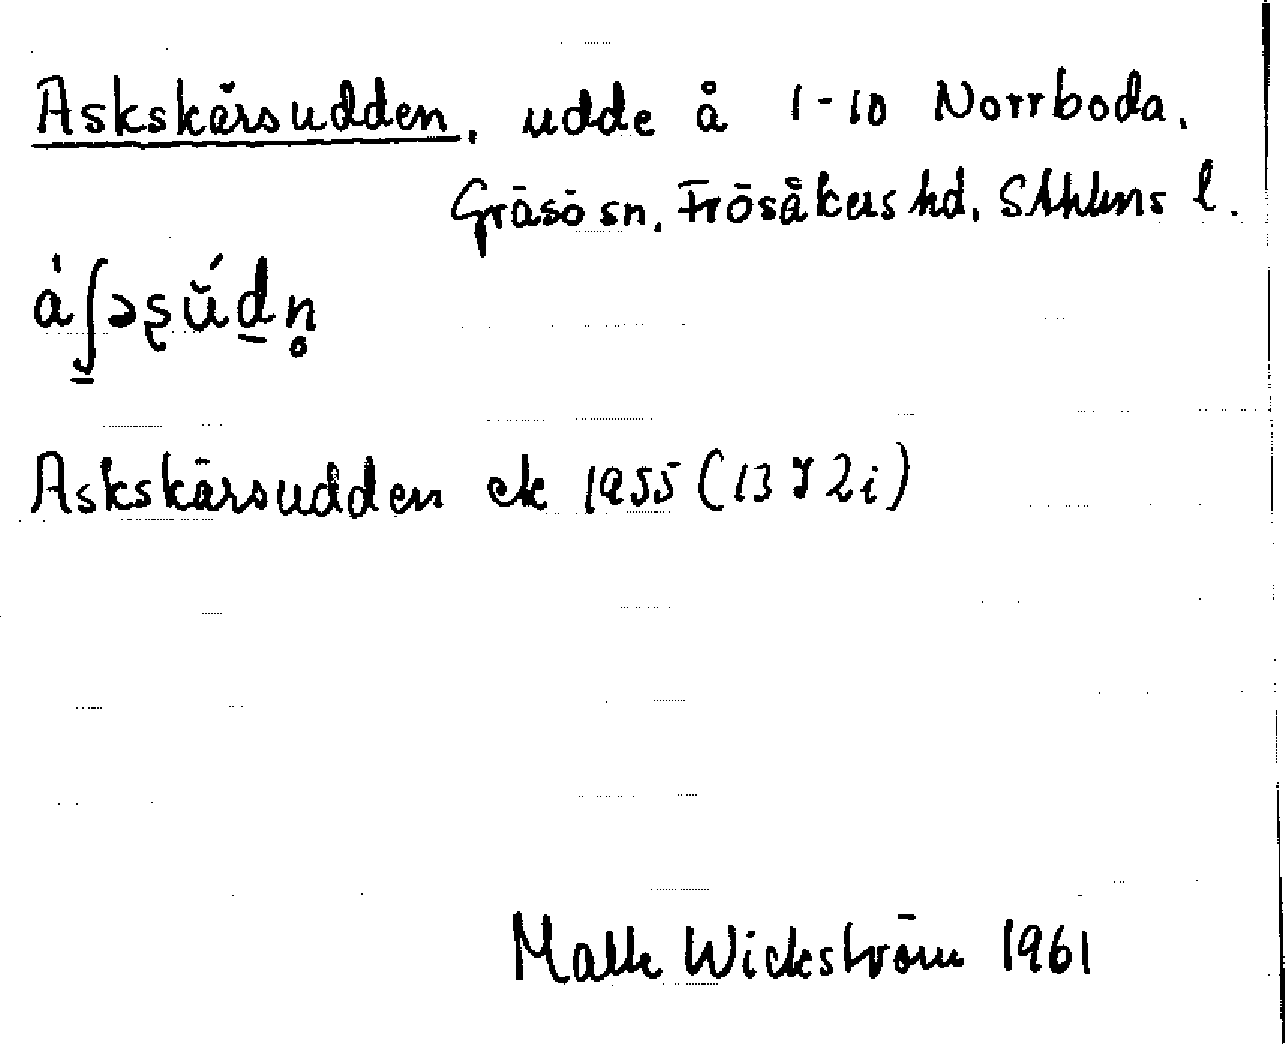 Askskärsudden, udde å 1-10 Norrboda,
Gräsö sn, Frösåkers hd, Sthlms l.
à̱ʃəʂŭ́ḏn̥
Askskärsudden ek 1955 (13 I 2i)
Wickström 1961